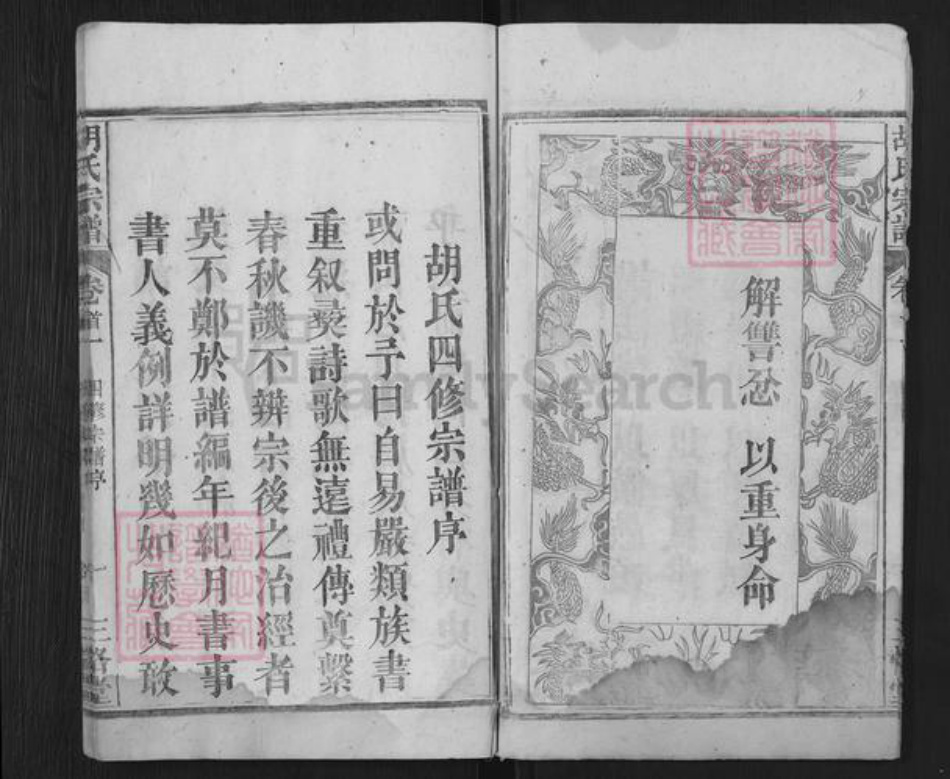 胡氏宗譜
解讐忿 以重身命
胡氏四修宗譜序
或問於予曰自易嚴類族書
重叙彝詩歌無遠禮傳奠繫
春秋譏不辨宗後之治經者
莫不鄭於譜編年紀月書事
書人義例詳明幾如歷史敢
胡氏宗譜 卷首一 四修宗譜序
FamilySearch